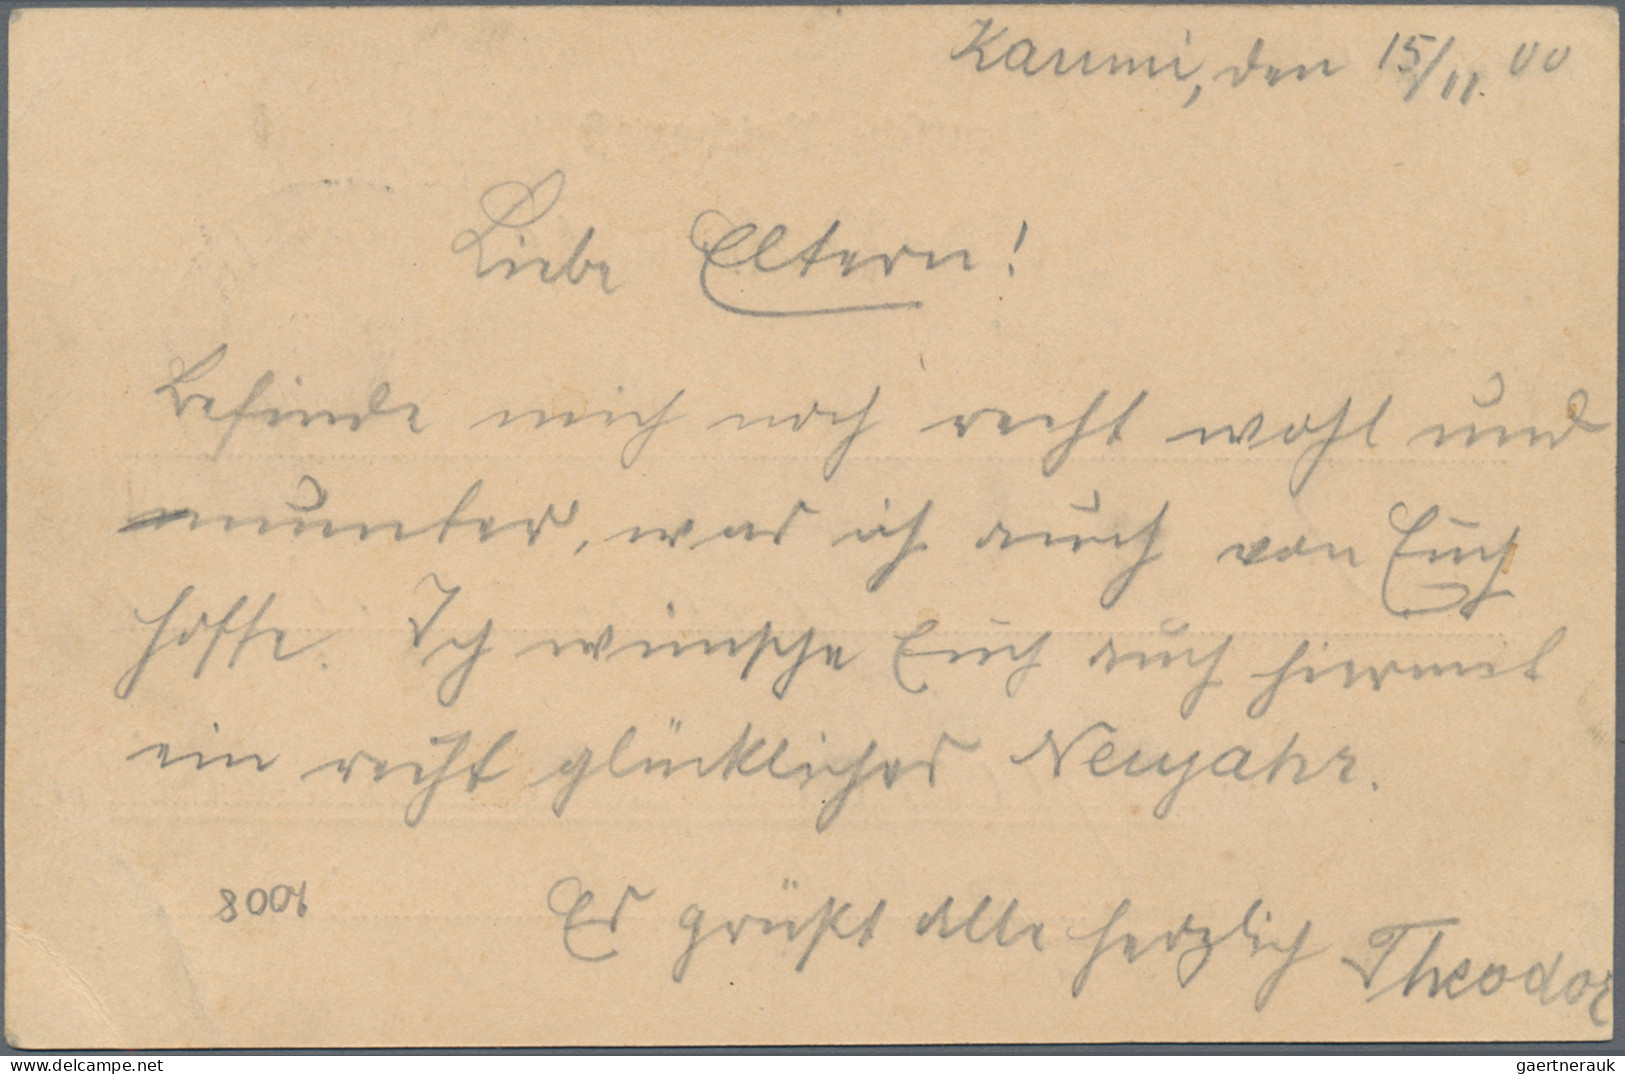 Kaumi, den 15/11. 00
Liebe Eltern!
Befinde mich noch recht wohl und
munter, was ich auch von Euch
hoffe. Ich wünsche Euch auch hiermit
ein recht glückliches Neujahr.
Es grüßt alle herzlich Theodor
8001
www.delcampe.net
gaertnerauk